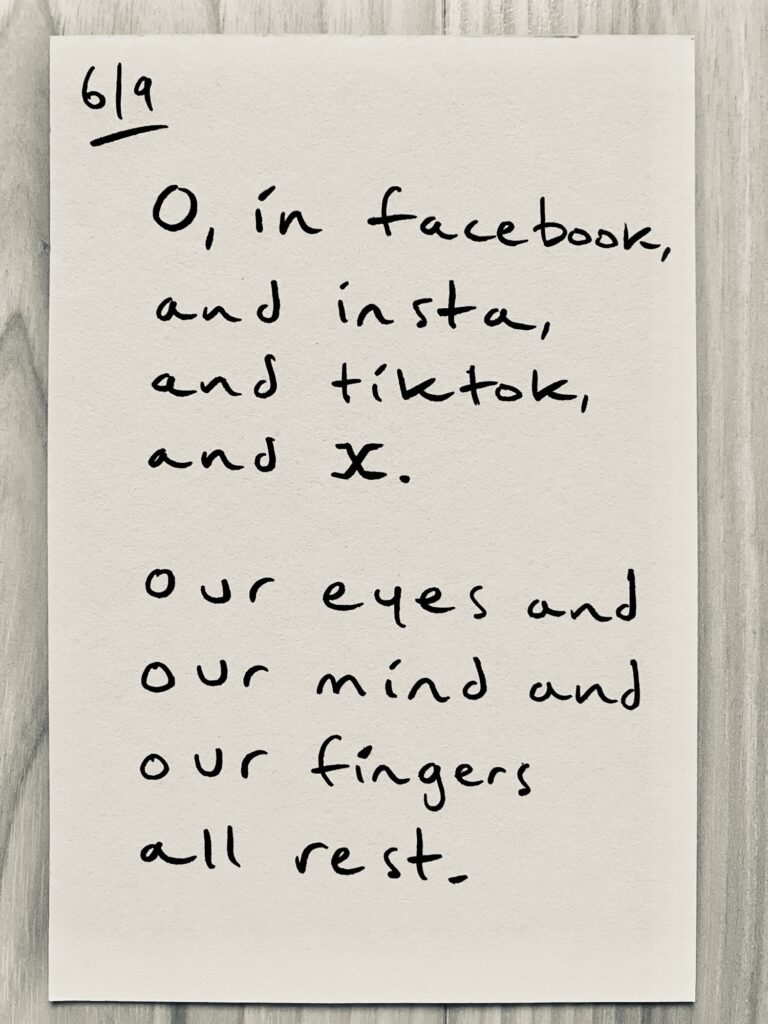 6/9
O, in facebook,
and insta,
and tiktok,
and x.
our eyes and
our mind and
our fingers
all rest.